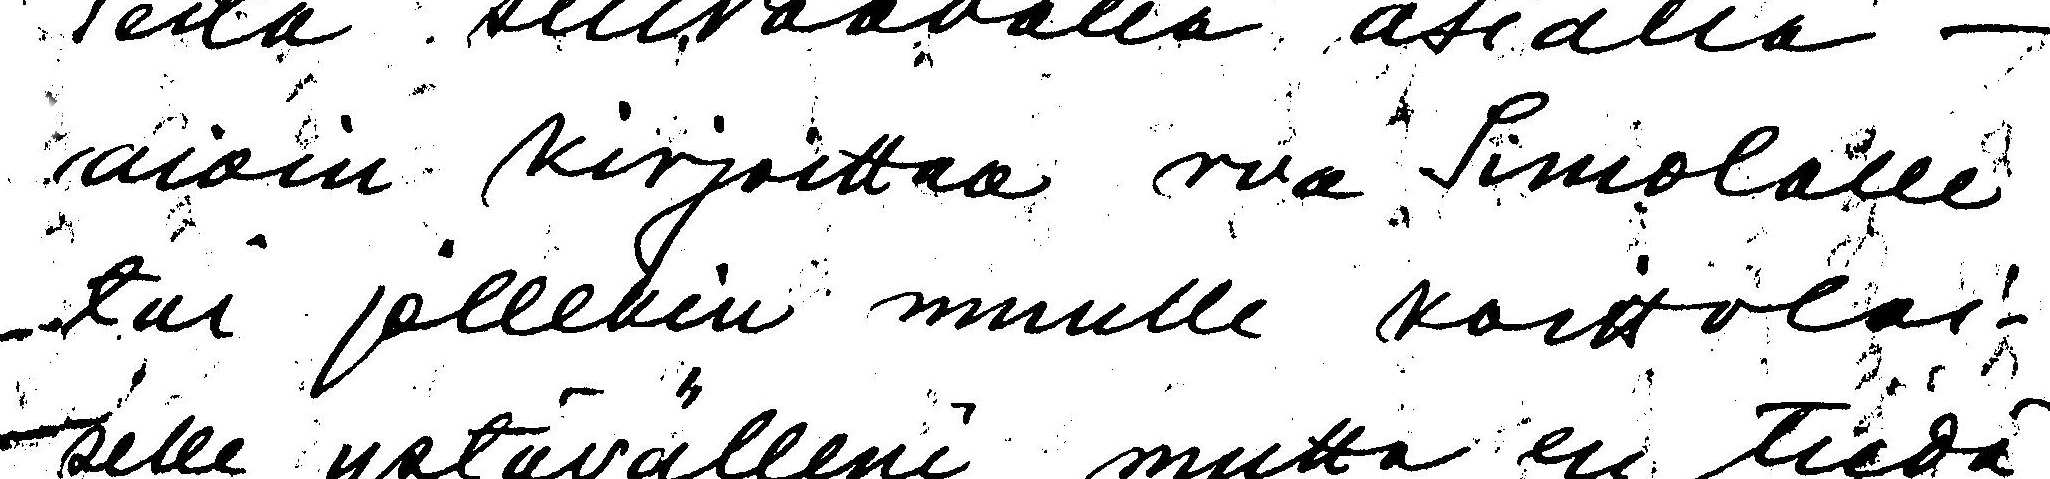 Teitä seuraavalla asialla —
aioin kirjoittaa rva Simolalle
tai jollekin muulle koittolai-
selle ystävälleni mutta en tiedä